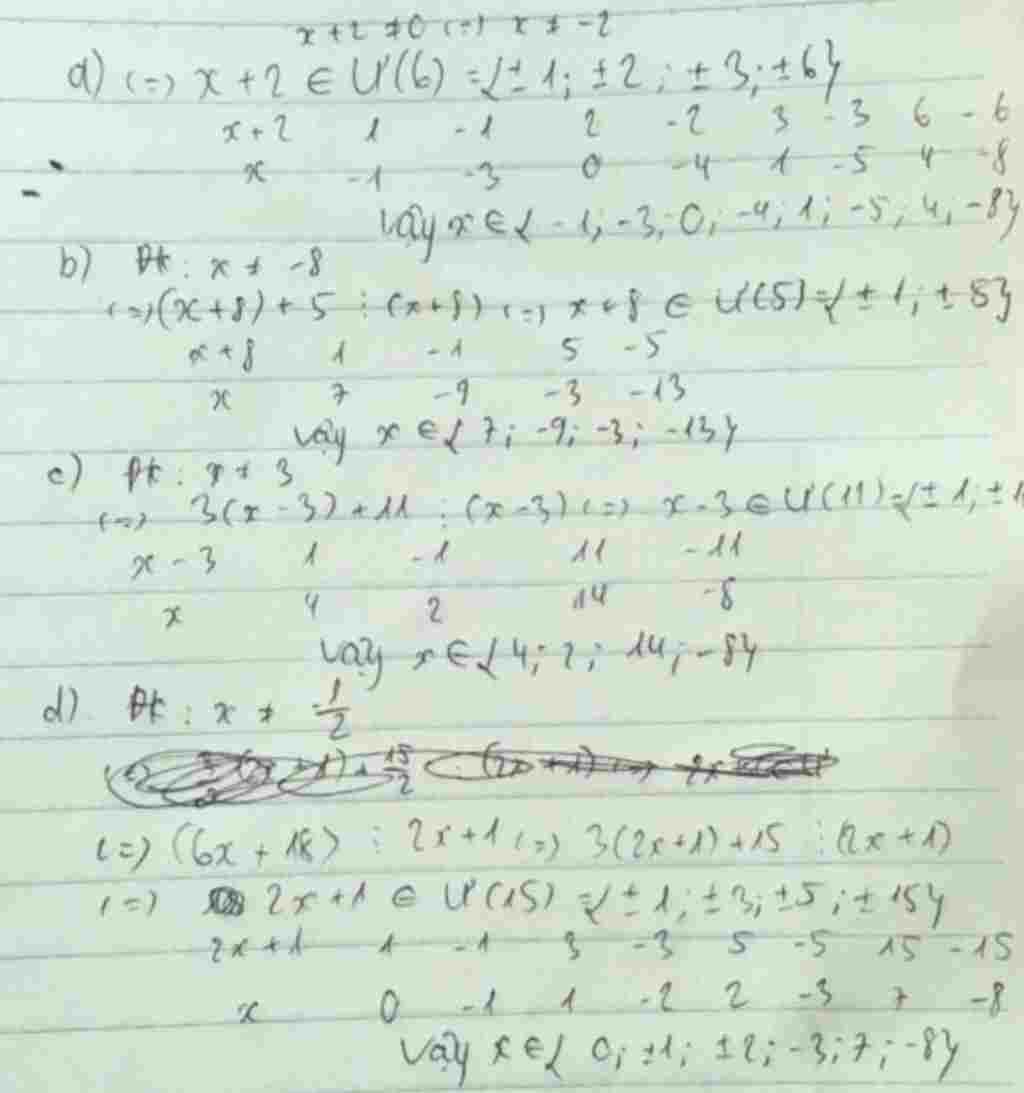 x + 2 ≠ 0 (=) x ≠ -2
a) (=) x + 2 ∈ Ư(6) = {± 1; ± 2; ± 3; ± 6}
x + 2 1 -1 2 -2 3 -3 6 -6
x -1 -3 0 -4 1 -5 4 -8
Vậy x ∈ { -1; -3; 0; -4; 1; -5; 4; -8}
b) Đk: x ≠ -8
(=) (x+8) + 5 ⋮ (x+8) (=) x + 8 ∈ Ư(5) = {± 1; ± 5}
x + 8 1 -1 5 -5
x 7 -9 -3 -13
Vậy x ∈ { 7; -9; -3; -13}
c) Đk: x ≠ 3
(=) 3(x - 3) + 11 ⋮ (x-3) (=) x - 3 ∈ Ư(11) = {± 1; ± 1
x - 3 1 -1 11 -11
x 4 2 14 -8
Vậy x ∈ { 4; 2; 14; -8}
d) Đk: x ≠ -1/2
(=) (6x + 18) ⋮ 2x + 1 (=) 3(2x+1) + 15 ⋮ (2x + 1)
(=) 2x + 1 ∈ Ư(15) = {± 1; ± 3; ± 5; ± 15}
2x + 1 1 -1 3 -3 5 -5 15 -15
x 0 -1 1 -2 2 -3 7 -8
Vậy x ∈ { 0; ±1; ±2; -3; 7; -8}